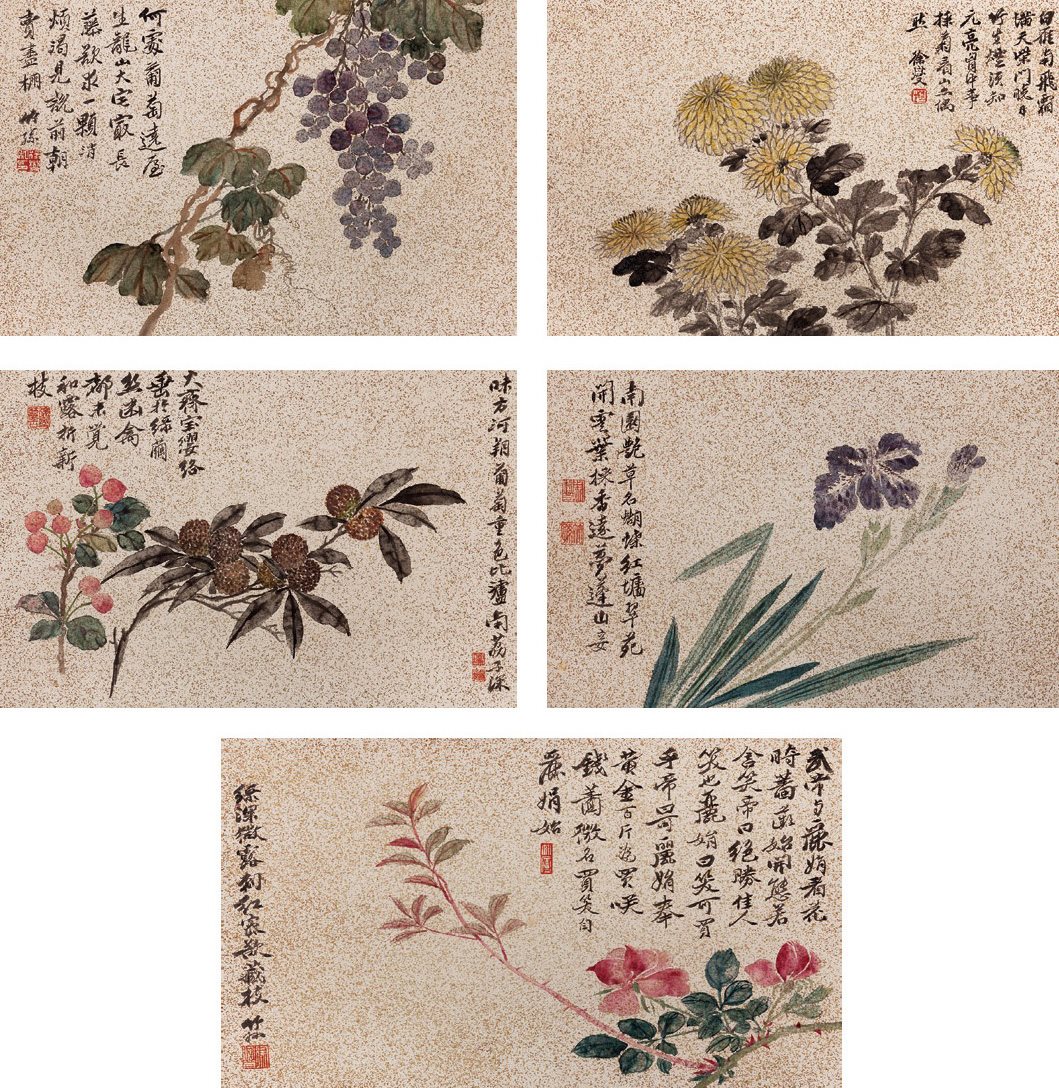 何處葡萄遶屋
生龍山大宅最長
藤欲求一顆消
煩渴見說前朝
賣盡棚 竹孫
白雁南飛霜
滿天柴門晚日
竹生煙須知
元亮胸中事
採菊看山亦偶
然
味方河朔葡萄重色比瀘南荔子深
火齊宝瓔珞
垂於綠繭
絲幽禽
都未覺
和露折新
枝
南園艷草名蝴蝶紅墻翠苑
開雲葉採香遠夢蓬山妾
武帝与麗娟看花
時薔薇始開態若
含笑帝曰絕勝佳人
笑也麗娟曰笑可買
乎帝曰可麗娟奉
黃金百斤為買咲
錢薔薇名買笑自
麗娟始
綠深微露刺紅密欲藏枝 竹孫